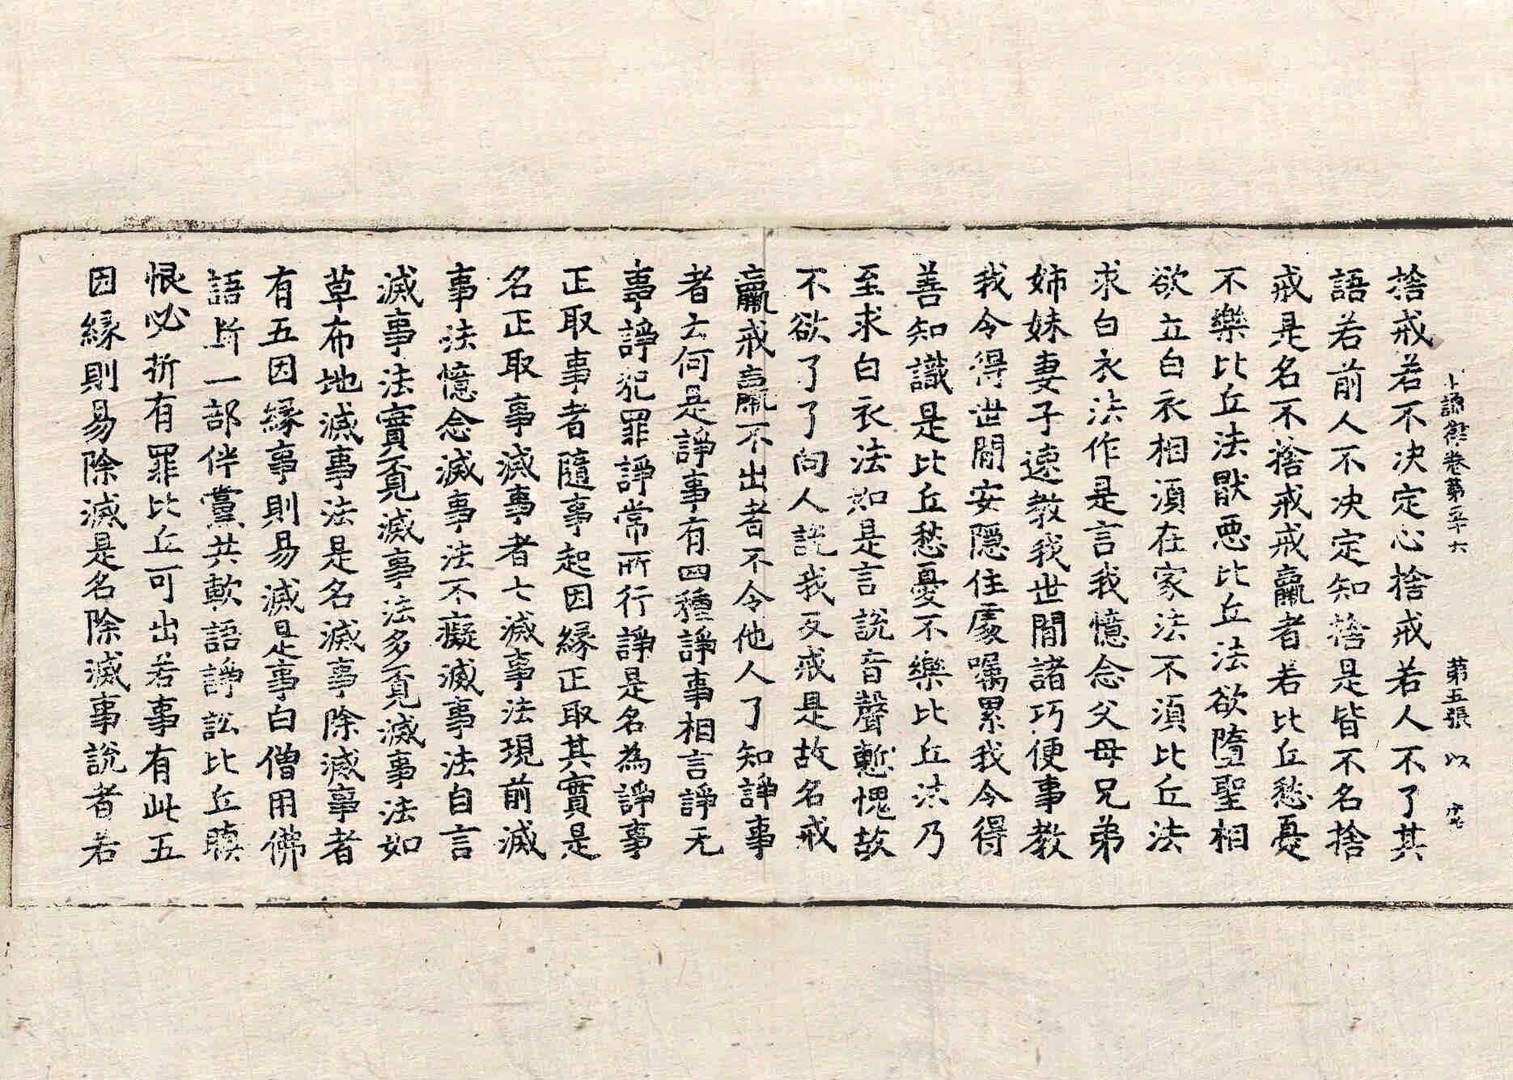 十誦律卷第五十六 第五張 以
捨戒若不决定心捨戒若人不了其
語若前人不决定知捨是皆不名捨
戒是名不捨戒戒羸者若比丘愁憂
不樂比丘法猒惡比丘法欲墮聖相
欲立白衣相湏在家法不湏比丘法
求白衣法作是言我憶念父母兄弟
姉妹妻子速教我世閒諸巧便事教
我令得世閒安隱住處囑累我令得
善知識是比丘愁憂不樂比丘法乃
至求白衣法如是言說音聲慙愧故
不欲了了向人說我反戒是故名戒
羸戒羸不出者不令他人了知諍事
者云何是諍事有四種諍事相言諍无
事諍犯罪諍常所行諍是名為諍事
正取事者隨事起因縁正取其實是
名正取事滅事者七滅事法現前滅
事法憶念滅事法不癡滅事法自言
滅事法實覔滅事法多覔滅事法如
草布地滅事法是名滅事除滅事者
有五因縁事則易滅是事白僧用佛
語斷一部伴黨共軟語諍訟比丘瞋
恨必折有罪比丘可出若事有此五
因縁則易除滅是名除滅事說者若